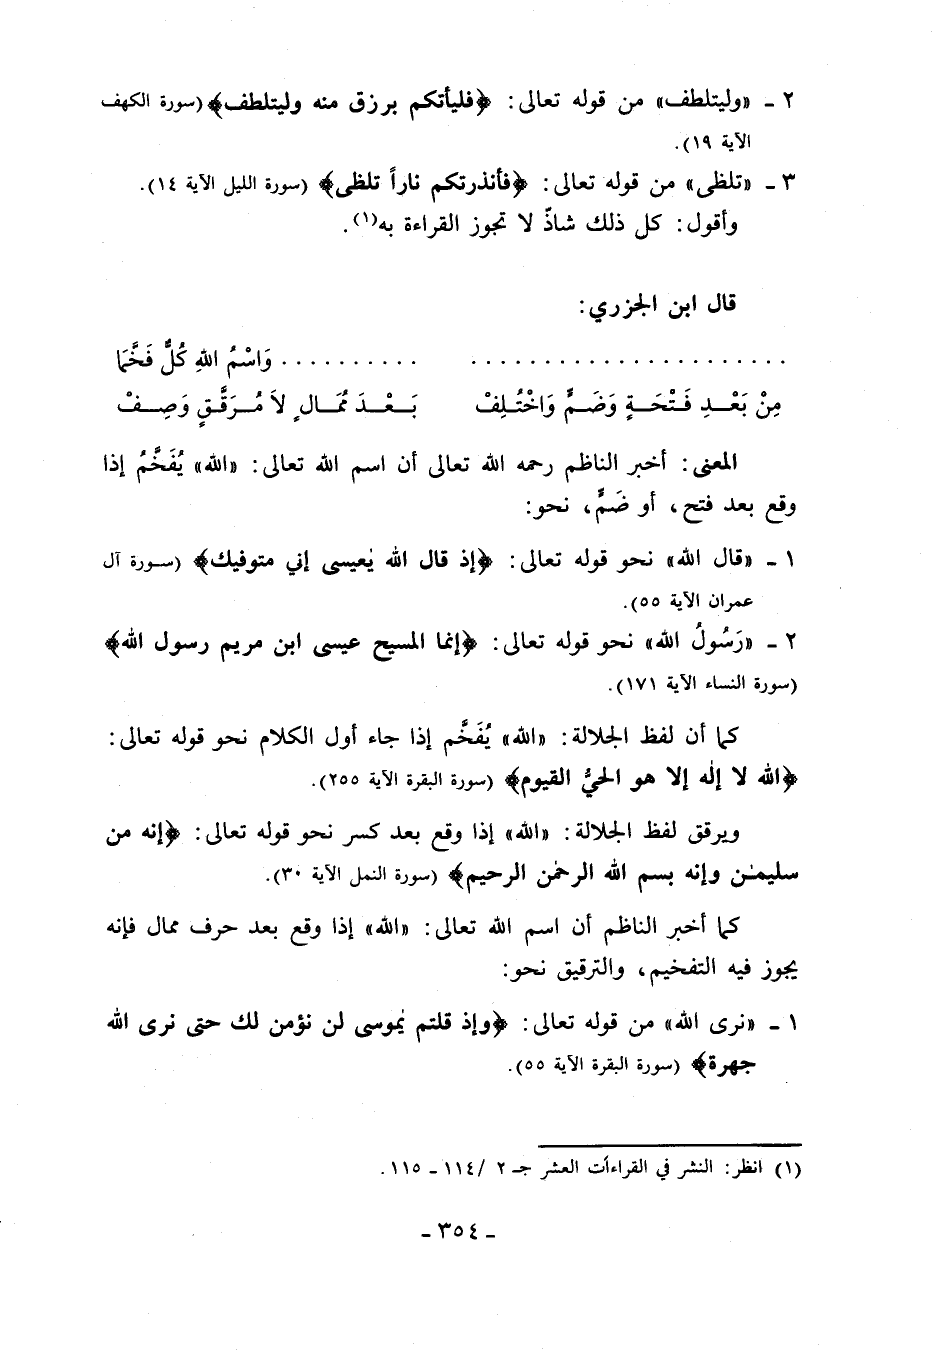 ٢ ـ «وليتلطف» من قوله تعالى: ﴿فليأتكم برزق منه وليتلطف﴾ (سورة الكهف
الآية ١٩).
٣ ـ «تلظى» من قوله تعالى: ﴿فأنذرتكم ناراً تلظى﴾ (سورة الليل الآية ١٤).
وأقول: كل ذلك شاذّ لا تجوز القراءة به(١).
قال ابن الجزري:
...................... .......... وَاسْمُ اللهِ كُلٌّ فَخَّمَا
مِنْ بَعْـدِ فَـتْحَـةٍ وَضَـمٍّ وَاخْتُـلِفْ بَـعْـدَ مُمَـالٍ لاَ مُـرَقَّـقٍ وَصِـفْ
المعنى: أخبر الناظم رحمه الله تعالى أن اسم الله تعالى: «الله» يُفَخَّمُ إذا
وقع بعد فتح، أو ضَمٍّ، نحو:
١ ـ «قال الله» نحو قوله تعالى: ﴿إذ قال الله يٰعيسى إني متوفيك﴾ (سورة آل
عمران الآية ٥٥).
٢ ـ «رَسُولُ الله» نحو قوله تعالى: ﴿إنما المسيح عيسى ابن مريم رسول الله﴾
(سورة النساء الآية ١٧١).
كما أن لفظ الجلالة: «الله» يُفَخَّم إذا جاء أول الكلام نحو قوله تعالى:
﴿الله لا إلٰه إلا هو الحيُّ القيوم﴾ (سورة البقرة الآية ٢٥٥).
ويرقق لفظ الجلالة: «الله» إذا وقع بعد كسر نحو قوله تعالى: ﴿إنه من
سليمـٰن وإنه بسم الله الرحمٰن الرحيم﴾ (سورة النمل الآية ٣٠).
كما أخبر الناظم أن اسم الله تعالى: «الله» إذا وقع بعد حرف ممال فإنه
يجوز فيه التفخيم، والترقيق نحو:
١ ـ «نرى الله» من قوله تعالى: ﴿وإذ قلتم يٰموسى لن نؤمن لك حتى نرى الله
جهرة﴾ (سورة البقرة الآية ٥٥).
(١) انظر: النشر في القراءات العشر جـ ٢ /١١٤ ـ ١١٥.
ـ ٣٥٤ ـ